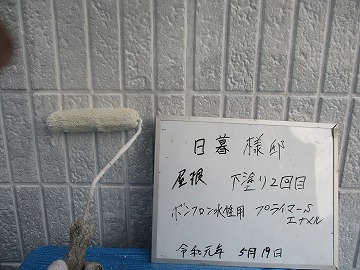 日暮 様邸
屋根 下塗り2回目
ボンフロン水性用 プライマーS
エナメル
令和元年 5月19日